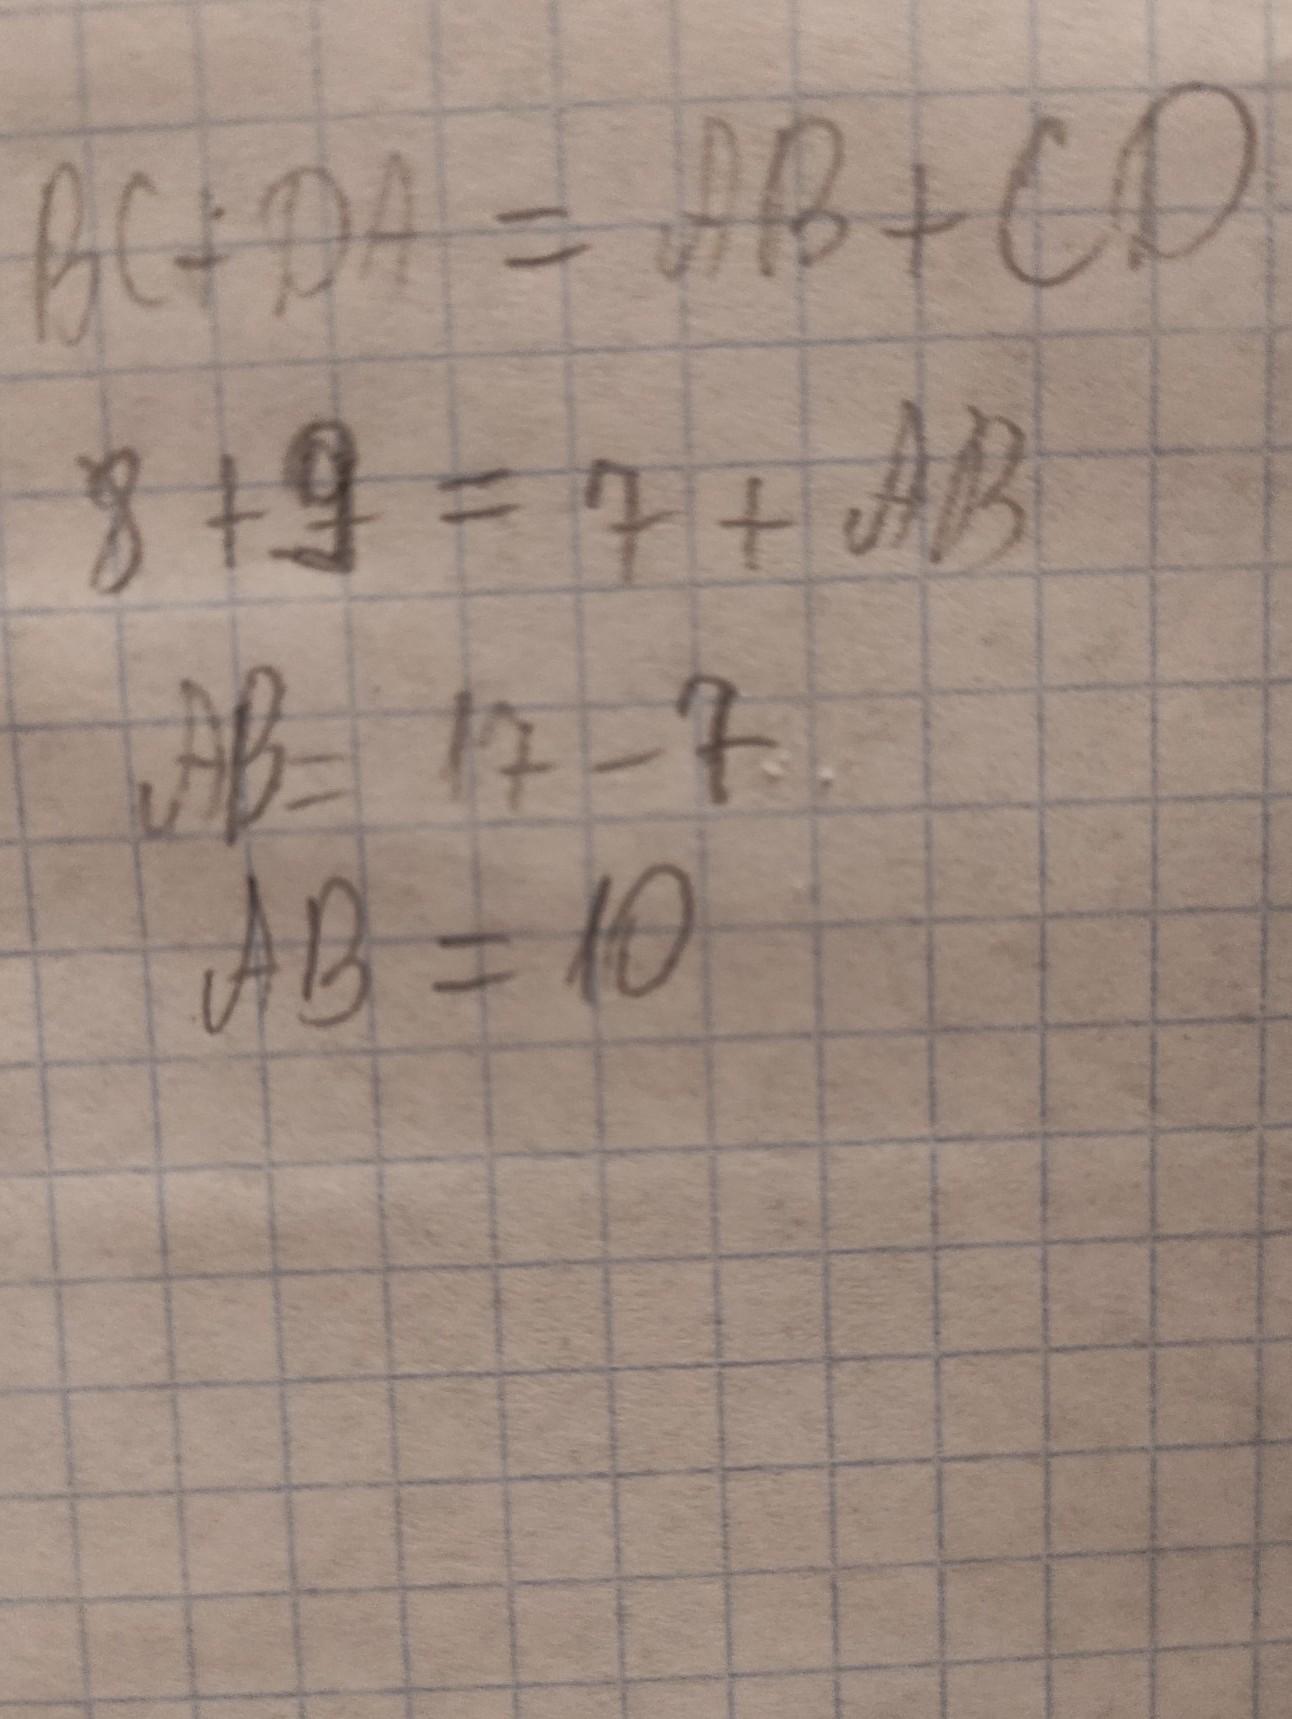 BC + DA = AB + CD
8 + 9 = 7 + AB
AB = 17 - 7
AB = 10